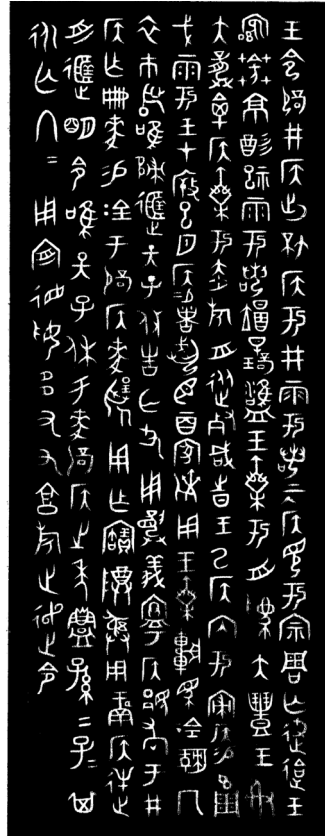 王令辟井侯出坏侯于井雩若二月侯見于宗周亡尤迨王
客葊京酌祀雩若翌日才璧雍王乘于舟為大豐王射
大龏禽侯乘于赤旂舟從死咸之日王以侯內于寢侯易玄周
戈雩王才㡴巳月侯易者臣二百家劑用王乘車馬金勒冂
衣巿舄唯歸遅天子休告亡尤用龏義寧侯顯孝于井
侯乍冊麥易金于辟侯麥揚用乍寶尊彝用侯逆
遅明令唯天子休于麥辟侯之年鑄孫孫子子其
永亡冬冬用造德妥多友享旋走令